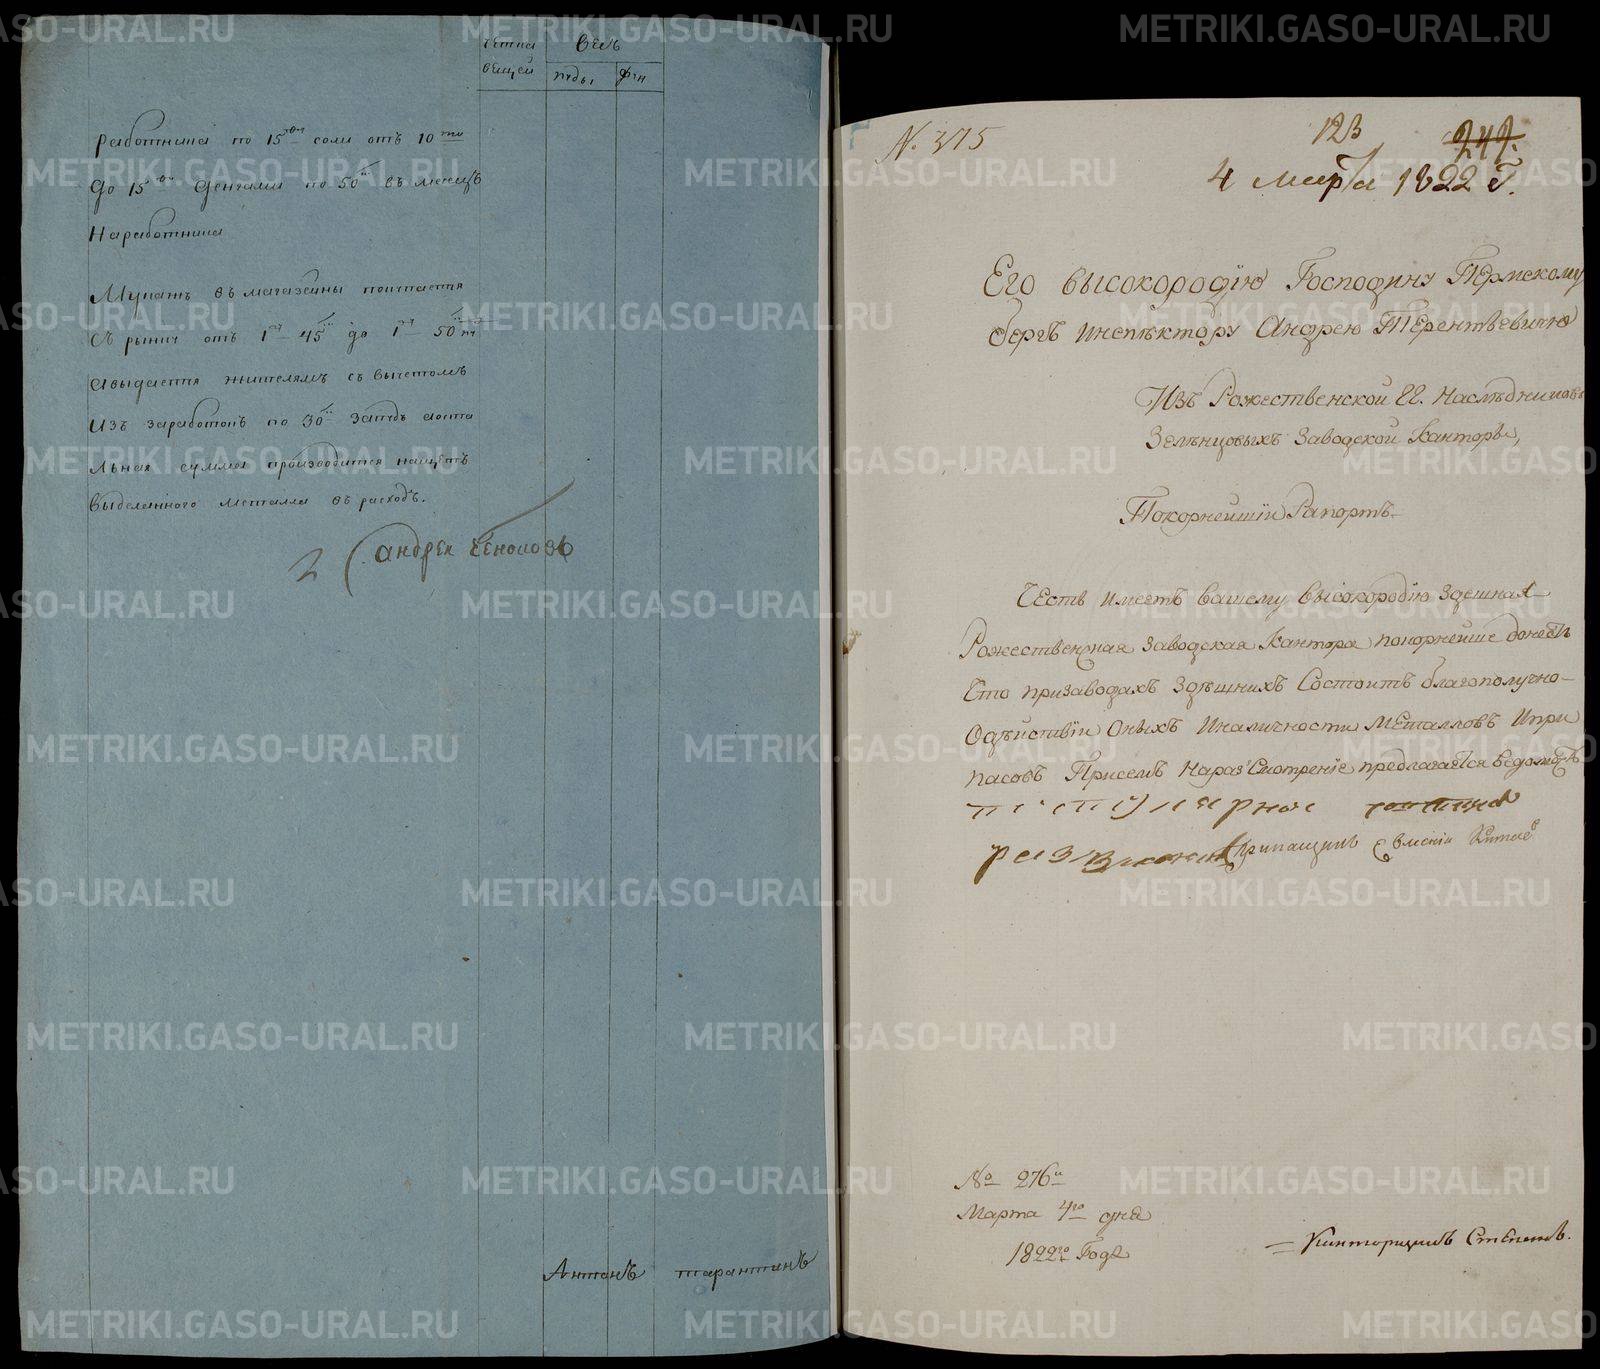 вещей
весъ
пуды,
фун
работника по 15 фун соли отъ 10 ти
до 15 фун денгами по 50 к въ месецъ
Наработника
Мука въ магазейны покупается
съ рынку отъ 1 45 до 1 50 к
авыдается жителямъ съ вычетомъ
Изъ заработокъ по 30 запудъ аоста
льная сумма производится насчетъ
выделаннаго металла въ расходъ.
Андреи
Антонъ тарантинъ
N. 375
123
247.
4 марта 1822 Г.
Его высокородїю Господину Пермскому
бергъ инспектору Андрею Терентьевичю
Изъ Рожественской ГГ. Наслѣдниковъ
Заводской Канторы,
Покорнейшїи Рапортъ
Честь имеетъ вашему высокородїю здешная
Рожественная заводская Кантора покорнейше донести
Что призаводахъ здѣшнихъ Состоитъ благополучно
Одѣйствїи Оныхъ Иналичности Металловъ Ипри
пасовъ Присемъ Наразсмотренїе предлагается ведомость
Прикащикъ
№ 276 и
Марта 4го дня
1822го Года
Канторщикъ Степановъ.
METRIKI.GASO-URAL.RU